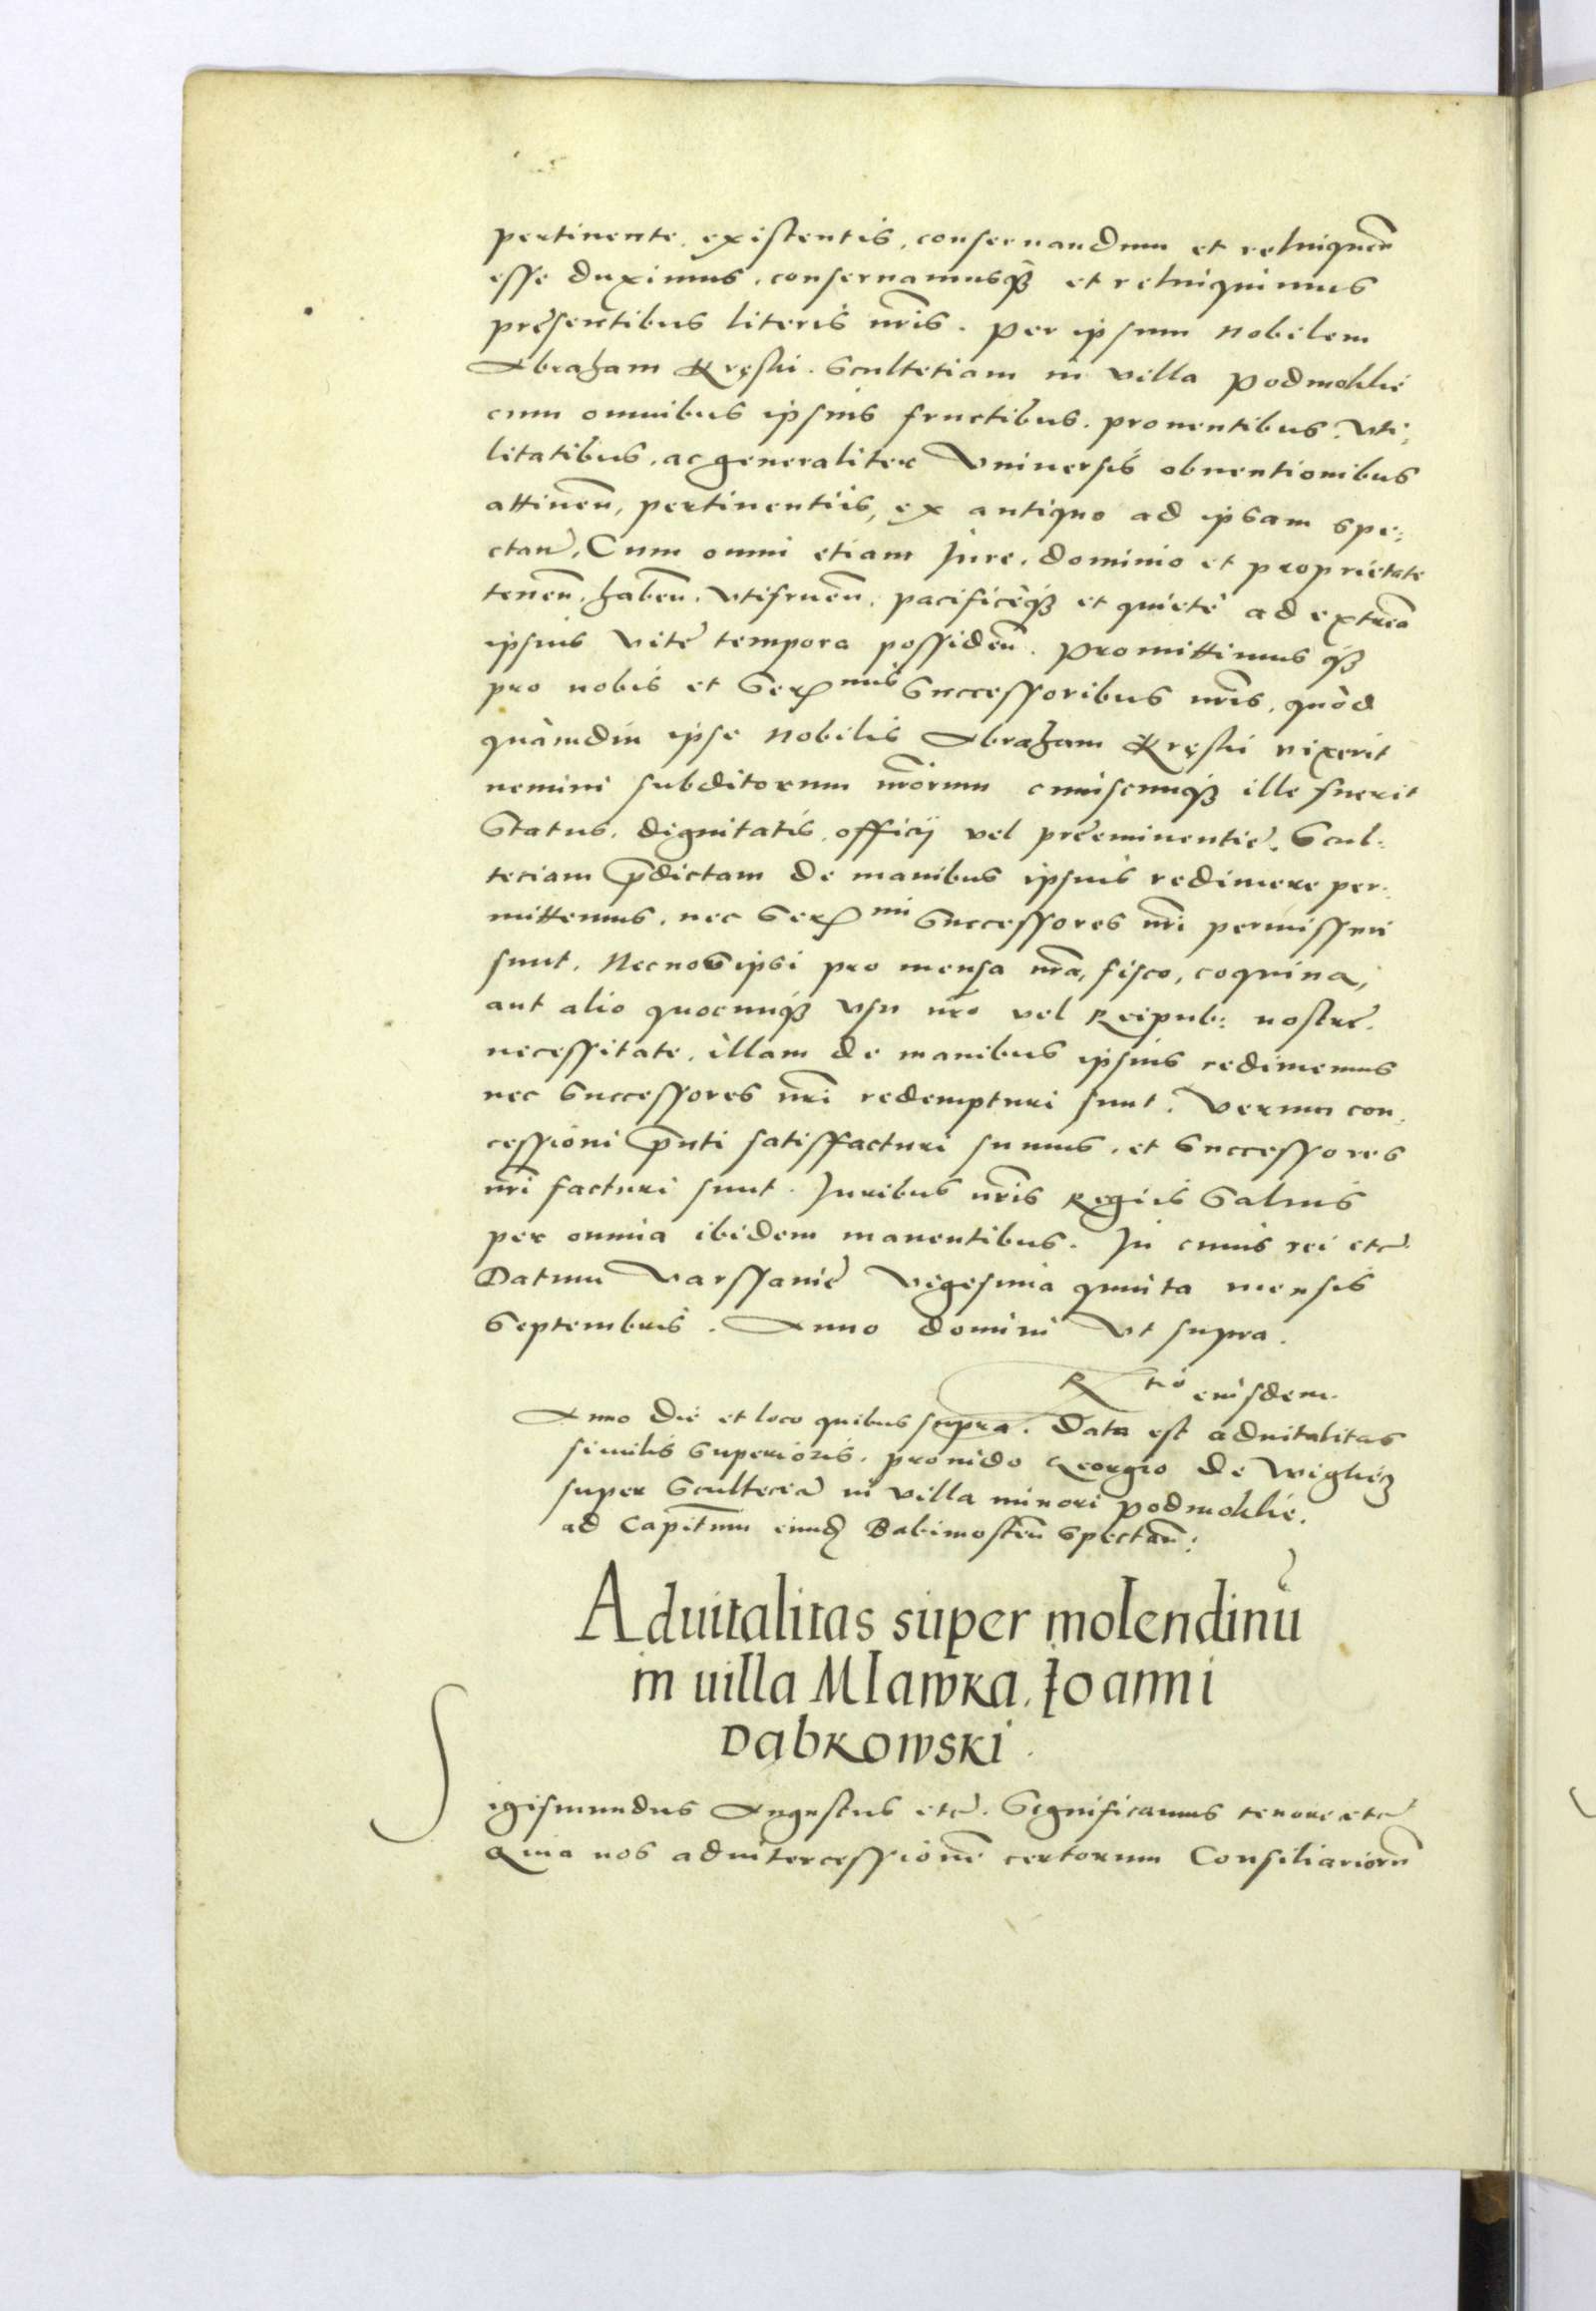 pertinente, existentis, conseruandum et relinquen̄
esse duximus, conseruamusqȝ et relinquimus
presentibus literis nr̄is. per ipsum Nobilem
Abraham Kręski Scultetiam in villa Podmoklie
cum omnibus ipsius fructibus, prouentibus, vti:
litatibus, ac generaliter Vniuersis obuentionibus
attinen̄, pertinentiis, ex antiquo ad ipsam spe:
ctan̄, Cum omni etiam Jure, dominio et proprietate
tenen̄, haben̄, vtifruen̄, pacificèqȝ et quietè ad extrēa
ipsius vitę tempora possiden̄. Promittimus qȝ
pro nobis et Serᵐⁱˢ Successoribus nr̄is, quòd
quàmdiu ipse Nobilis Abraham Kręski vixerit
nemini subditorum nr̄orum cuiuscunqȝ ille fuerit
Status, dignitatis, officij vel preeminentię, Scul:
teciam p̄dictam de manibus ipsius redimere per:
mittemus, nec Serᵐⁱ Successores nr̄i permissuri
sunt. Nec nos ipsi pro mensa nr̄a, fisco, coquina,
aut alio quocunqȝ vsu nr̄o vel Reipub: nostrę
necessitate, illam de manibus ipsius redimemus
nec Successores nr̄i redempturi sunt. Verum con:
cessioni p̄nti satisffacturi sumus, et Successores
nr̄i facturi sunt. Juribus nr̄is Regijs Saluis
per omnia ibidem manentibus. In cuius rei etc̄.
Datum Varssauię Vigesima quinta mensis
Septembris. Anno domini Vt supra.
Rᵗⁱᵒ eiusdem.
Anno die et loco quibus supra. Data est aduitalitas
similis Superioris, prouido Georgio de
super Scultecia in villa minori Podmoklie,
ad Capitn̄m eiund Babimosten̄ Spectan̄:
Aduitalitas super molendinū
in uilla Mlawka, Ioanni
Dąbkowski.
Sigismundus Augustus etc̄. Significamus tenore etc̄
Quia nos ad intercessionē certorum Consiliariorū